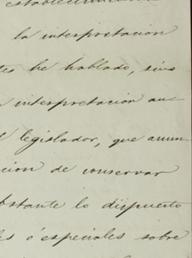 la interpretacion
he hablado, sino
interpretacion au
legislador, que anun
cion de conservar
bstante lo dispuesto
es ó especiales sobre